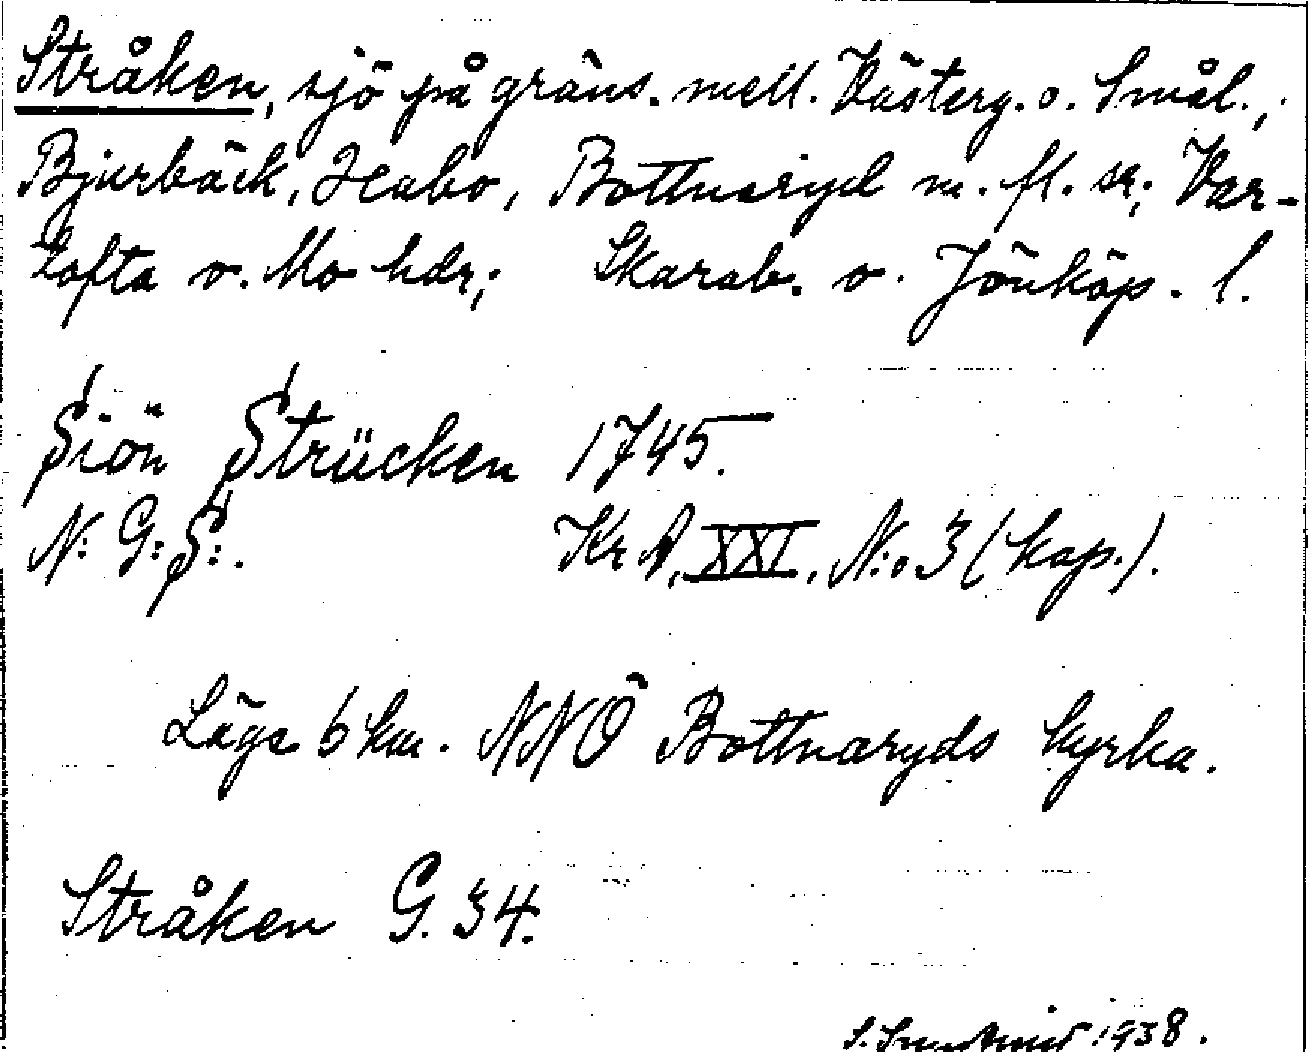 Stråken, sjö på gräns. mell. Västerg. o. Smål.,
Bjurbäck, Habo, Bottnaryd m. fl. sr; Var-
tofta o. Mo hdr; Skarab. o. Jönköp. l.
Siön Strücken 1745.
N: G: S:.
KrA, XXI, N:o 3 (kop.).
Läge 6 km. NNÖ Bottnaryds kyrka.
Stråken G. 34.
1938.